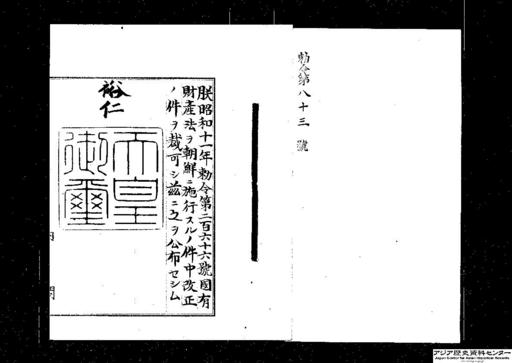 勅令第八十三號
朕昭和十一年勅令第二百六十六號國有
財產法ヲ朝鮮ニ施行スルノ件中改正
ノ件ヲ裁可シ茲ニ之ヲ公布セシム
裕仁
天皇
御璽
アジア歴史資料センター
Japan Center for Asian Historical Records